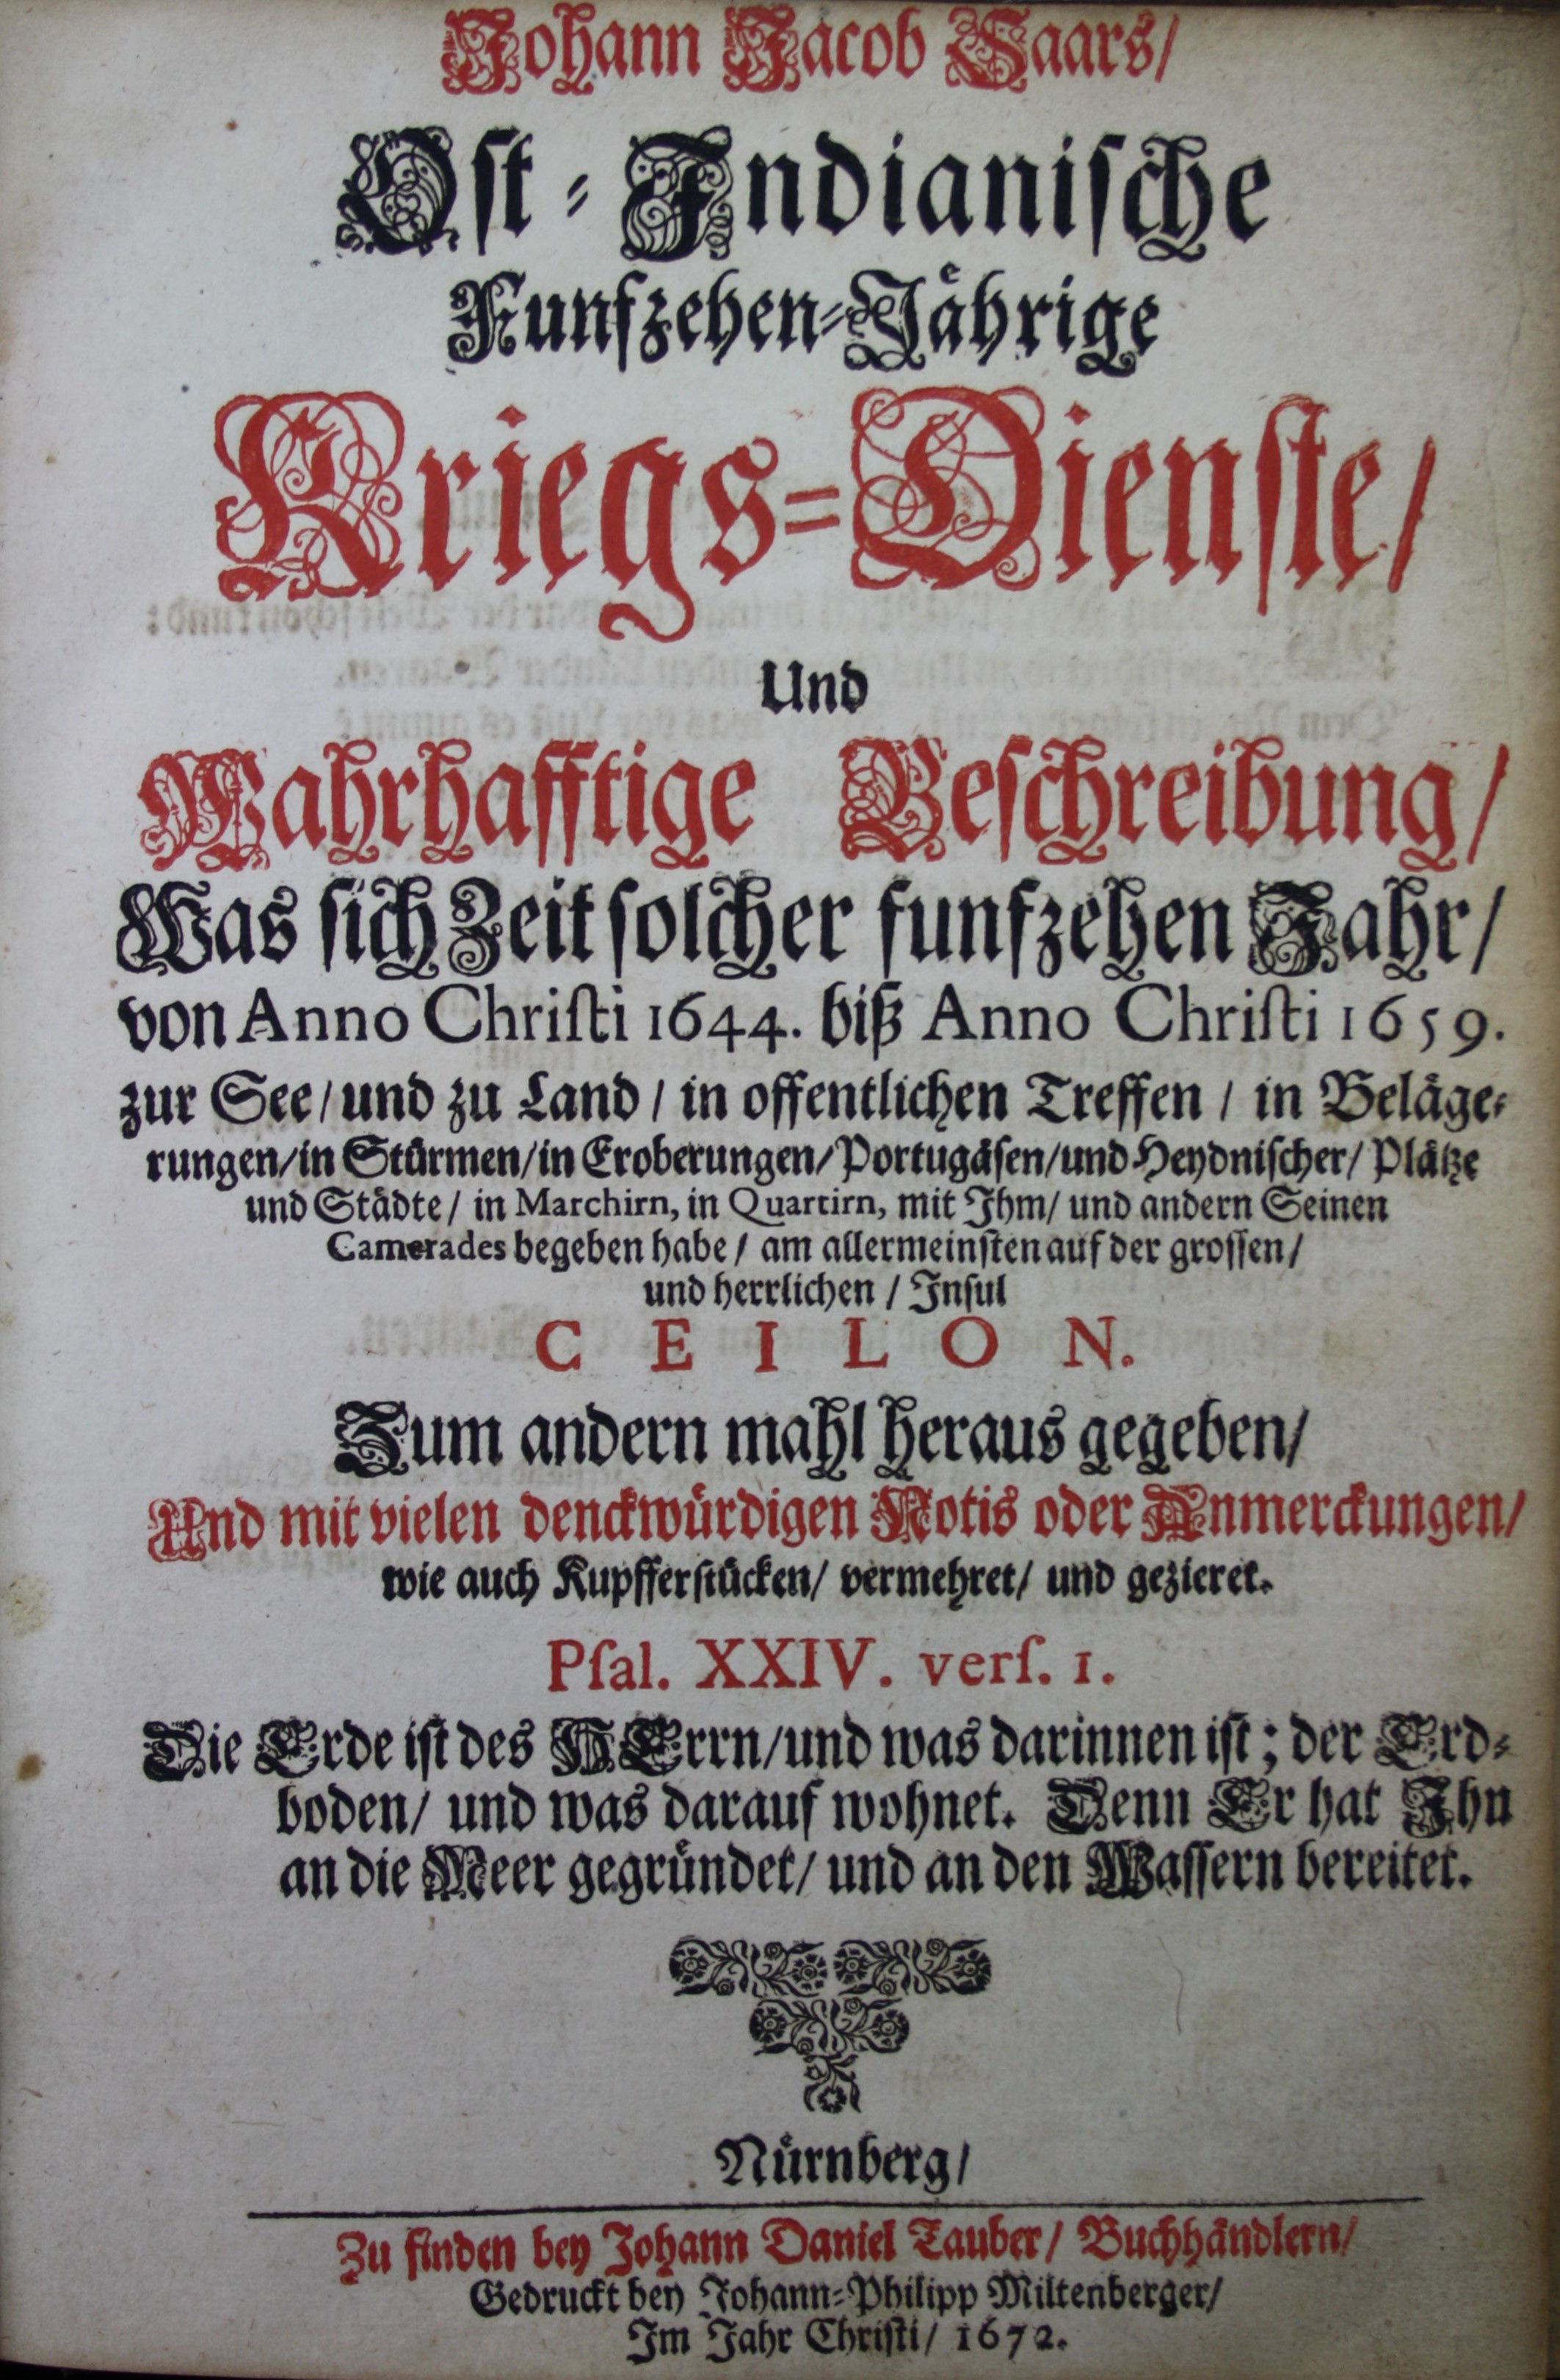 Johann Jacob Saars/
Ost-Indianische
Funfzehen-Jährige
Kriegs-Dienste/
Und
Wahrhafftige Beschreibung/
Was sich Zeit solcher funfzehen Jahr/
von Anno Christi 1644. biß Anno Christi 1659.
zur See/ und zu Land/ in offentlichen Treffen/ in Beläge-
rungen/ in Stürmen/ in Eroberungen/ Portugäsen/ und Heydnischer/ Plätze
und Städte/ in Marchirn, in Quartirn, mit Ihm/ und andern Seinen
Camerades begeben habe/ am allermeinsten auf der grossen/
und herrlichen/ Insul
CEILON.
Zum andern mahl heraus gegeben/
Und mit vielen denckwürdigen Notis oder Anmerckungen/
wie auch Kupfferstücken/ vermehret/ und gezieret.
Psal. XXIV. vers. 1.
Die Erde ist des HErrn/ und was darinnen ist; der Erd-
boden/ und was darauf wohnet. Denn Er hat Ihn
an die Meer gegründet/ und an den Wassern bereitet.
Nürnberg/
Zu finden bey Johann Daniel Tauber/ Buchhändlern/
Gedruckt bey Johann-Philipp Miltenberger/
Im Jahr Christi/ 1672.